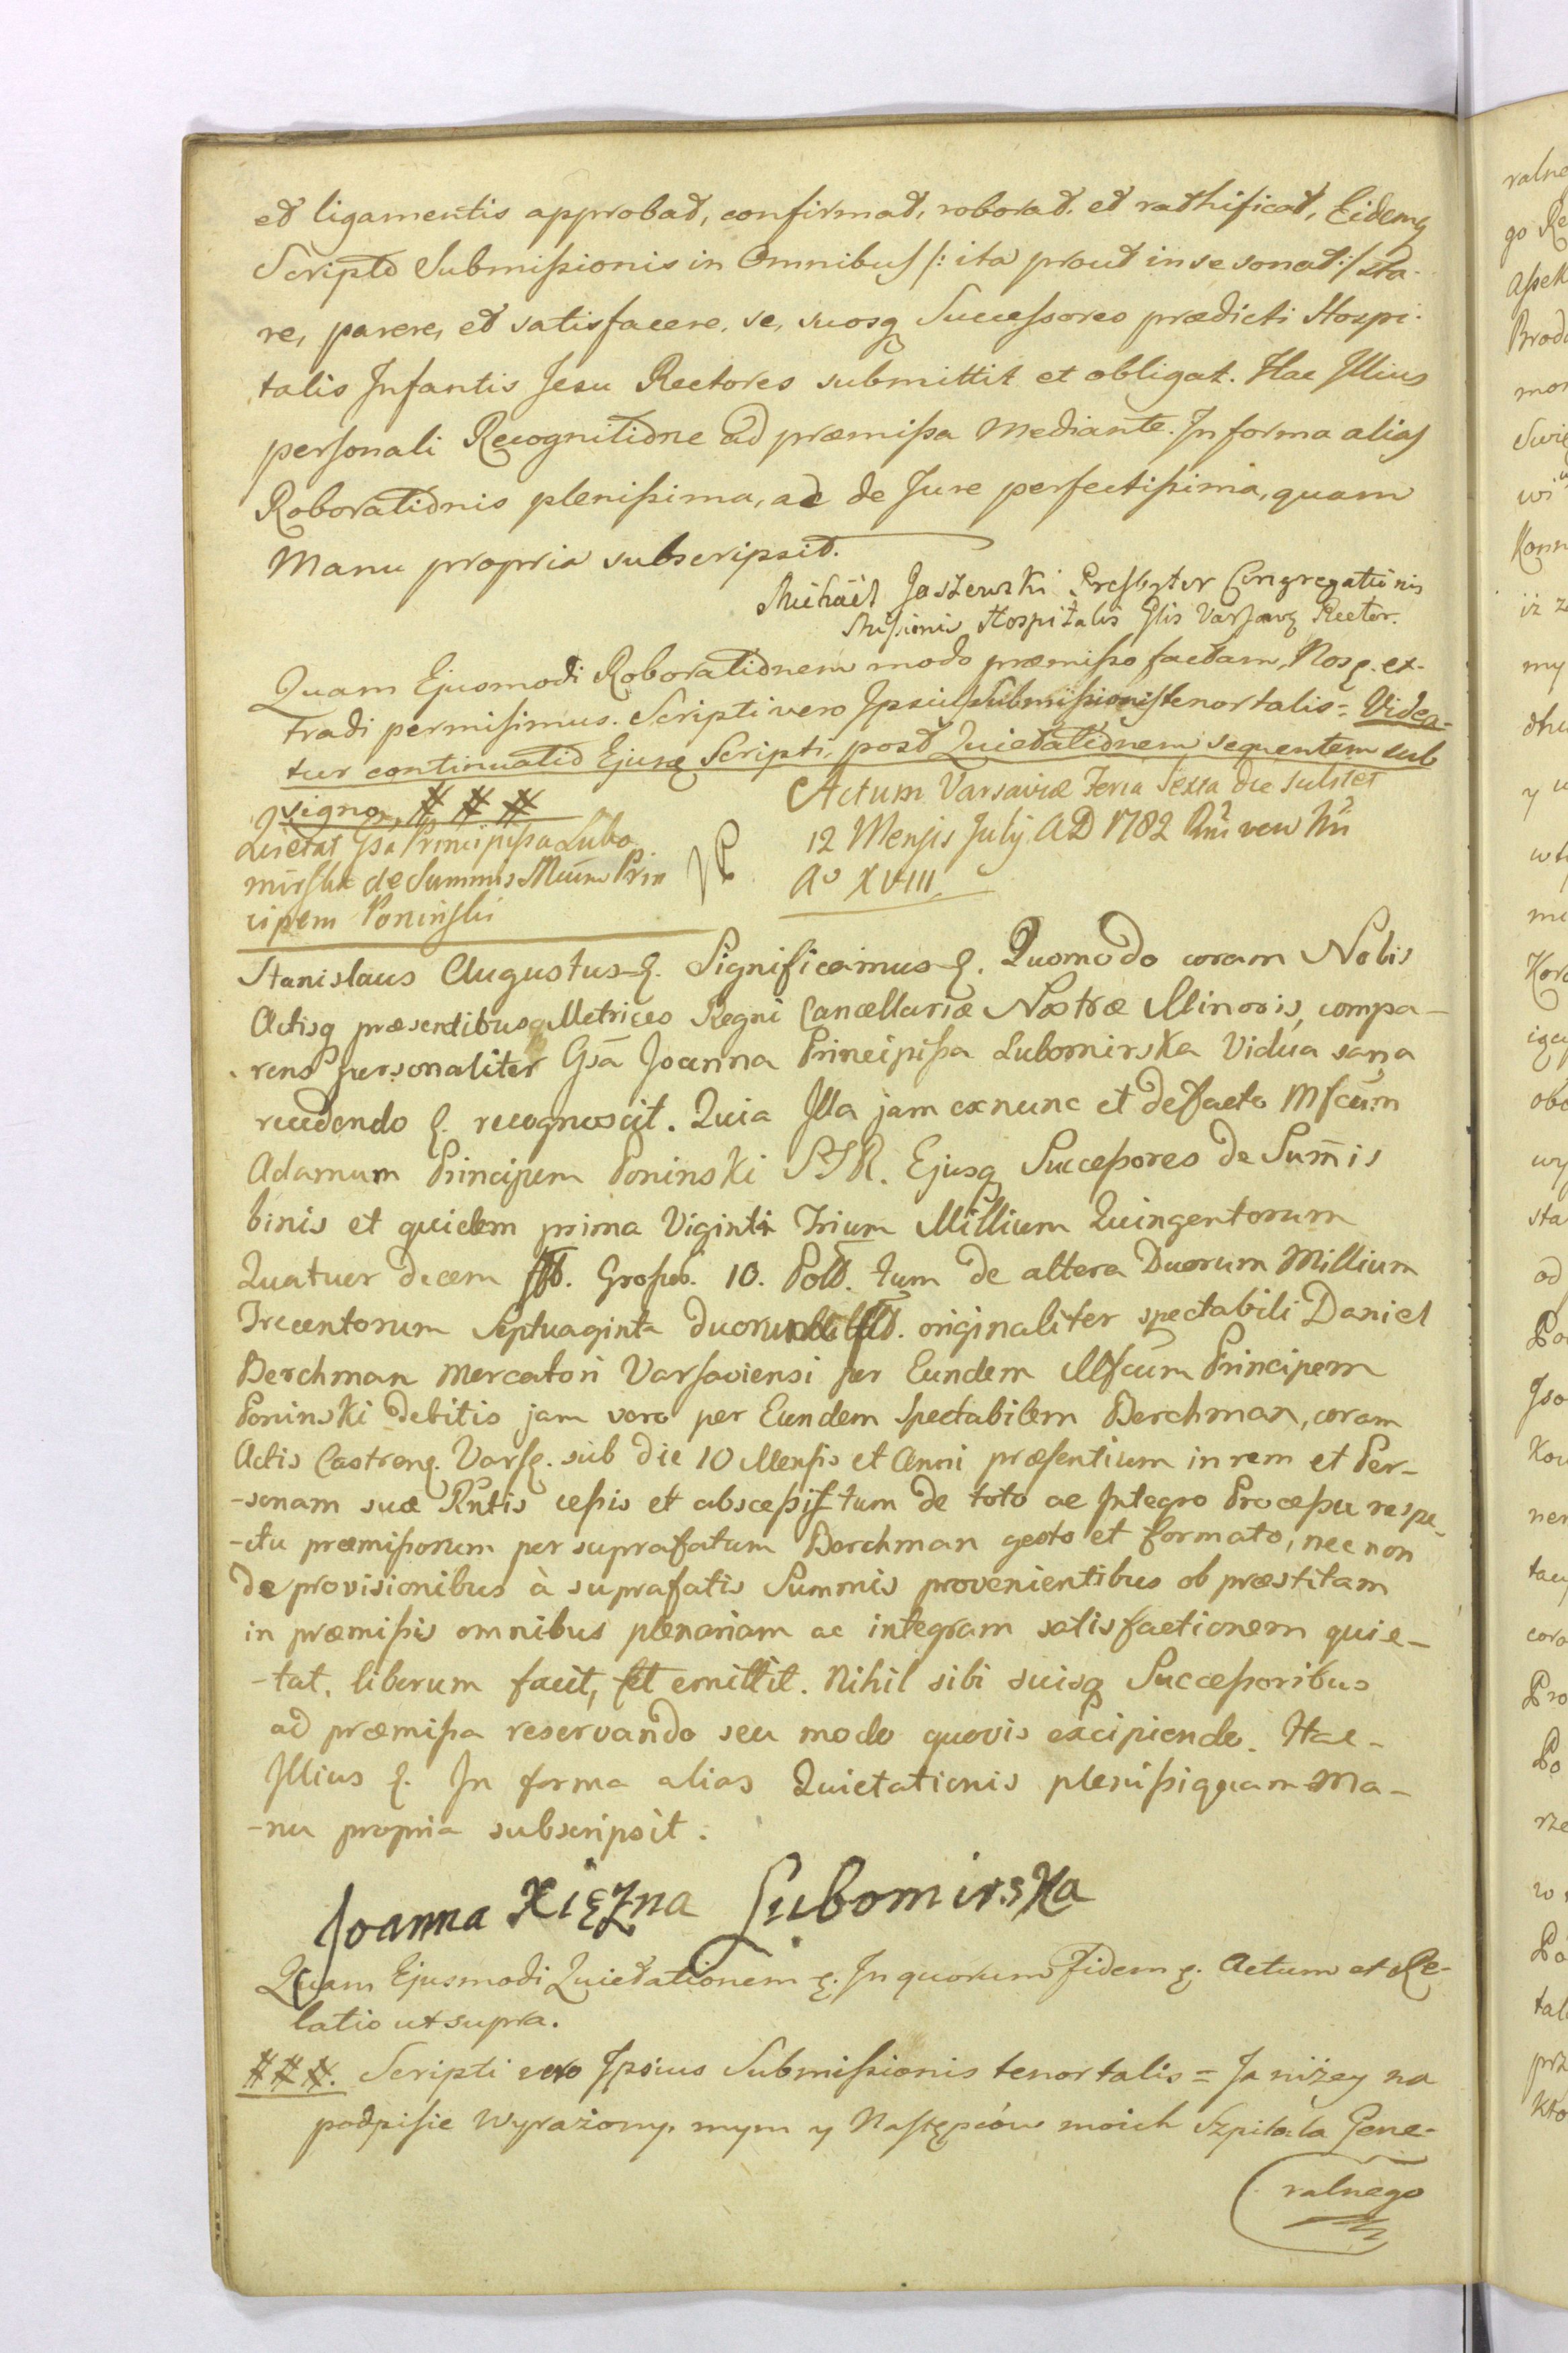 et ligamentis approbat, confirmat, roborat. et rathificat, Eidemq
Scripto Submißionis in Omnibus /: ita prout in se sonat :/ sta-
re, parere, et satisfacere, se, suosq Succeßores prædicti Hospi-
talis Infantis Jesu Rectores submittit et obligat. Hac Illius
personali Recognitione ad præmißa mediante. In forma alias
Roborationis plenißima, ac de Jure perfectißima, quam
Manu propria subscripsit.
Michael Jaszewski Presbyter Congregationis
Mißionis Hospitalis Glis Varsavq Rector.
Quam Ejusmodi Roborationem modo præmißo factam, Nos q. ex-
tradi permisimus. Scripti vero Ipsius Submißionis tenor talis = Videa-
tur continuatio Ejusq Scripti, post Quietationem sequentem sub
signo, # # #
Quietat Gsa Principißa Lubo
mirska de Summis Mcum Prin
cipem Poninski
Actum Varsaviæ Feria Sexta die scilicet
12 Mensis July AD 1782 Rni vero Nri
Ao XVIII.
Stanislaus Augustus q. Significamus q. Quomodo coram Nobis
Actisq præsentibusq Metrices Regni Cancellariæ Nostræ Minoris, compa-
rens personaliter Gsa Joanna Principißa Lubomirska Vidua sana
recedendo q. recognoscit. Quia Illa jam ex nunc et de facto Mfcum
Adamum Principem Poninski STR. Ejusq Succeßores de Sumis
binis et quidem prima Viginti Trium Millium Quingentorum
Quatuor decem flo. Großeo. 10. Poll. tum de altera Duorum Millium
Trecentorum Septuaginta duorum flo. originaliter spectabili Daniel
Berchman Mercatori Varsaviensi per Eundem Mfcum Principem
Poninski debitis jam vero per Eundem Spectabilem Berchman, coram
Actis Castrenq. Varsq. sub die 10 Mensis et Anni præsentium in rem et Per-
-sonam suæ Rntis ceßis et absceßis tum de toto ac Integro Proceßu respe-
-ctu præmißorum per suprafatum Berchman gesto et formato, nec non
de provisionibus à suprafatis Summis provenientibus ob præstitam
in præmißis omnibus plenariam ac integram satisfactionem quie-
-tat, liberum facit, et emittit. Nihil sibi suisq Succeßoribus
ad præmißa reservando seu modo quovis excipiendo. Hac-
Illius q. In forma alias Quietationis plenißi quam Ma-
-nu propria subscripsit.
Joanna Xiężna Lubomirska
Quam Ejusmodi Quietationem q. In quorum Fidem q. Actum et Re-
latio ut supra.
# # #. Scripti vero Ipsius Submißionis tenor talis = Ja niżey na
podpisie wyrażony, mym y Następców moich Szpitala Gene-
ralnego